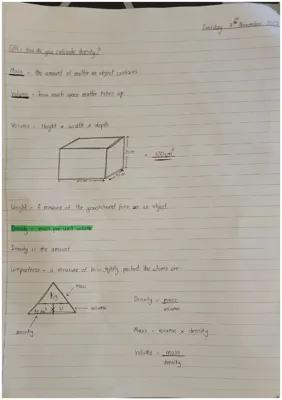 Tuesday 8th November 2022
How do you calculate density?
Mass - the amount of matter an object contains
Volume - how much space matter takes up.
Volume = Height x width x depth
= 500cm³
Weight - A measure of the gravitational force on an object
Density - mass per unit volume
Density is the amount
compactness - a measure of how tightly packed the atoms are
mass
Kg
V
volume
density
Density = mass
volume
Mass = volume x density
Volume = mass
density